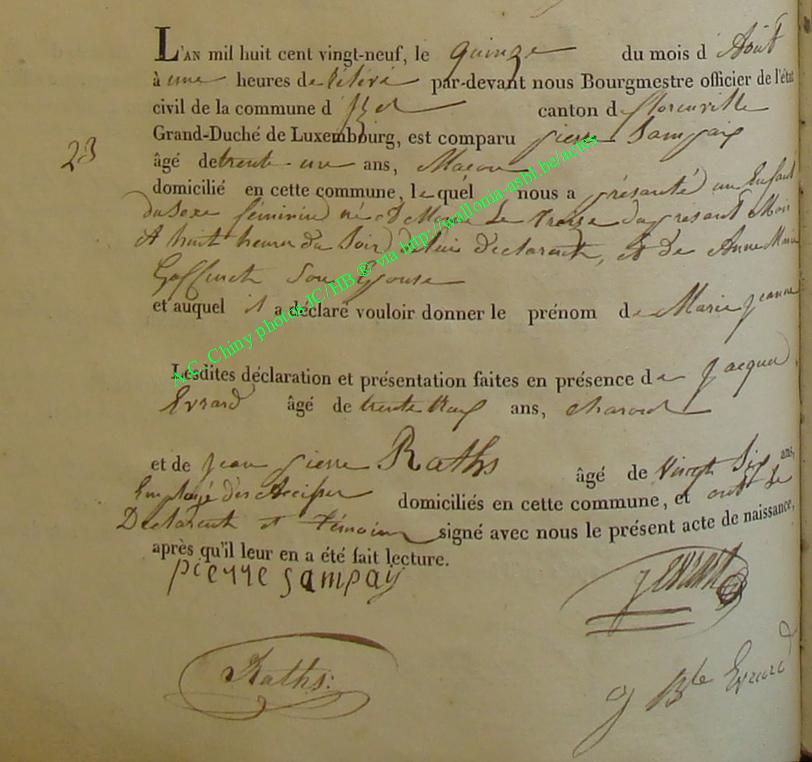 L'AN mil huit cent vingt-neuf, le quinze du mois d Août
à une heures de par-devant nous Bourgmestre officier de l'état
civil de la commune d canton de florenville
Grand-Duché de Luxembourg, est comparu pierre Sampaix
23
âgé de trente un ans, Macon
domicilié en cette commune, lequel nous a présanté un Enfant
du Sexe féminin né à le treize du présant Mois
A huit heures du Soir de lui déclarent, et de Anne Marie
Goffinet Son Epouse
et auquel il a déclaré vouloir donner le prénom de Marie jeanne
Lesdites déclaration et présentation faites en présence de Jacque
Evrard âgé de trente ans,
et de jean pierre Raths âgé de Vingt Six ans,
Employé des Accises domiciliés en cette commune, et ont le
Déclarent et témoins signé avec nous le présent acte de naissance,
après qu'il leur en a été fait lecture.
pierre sampay
Raths:
J Bte Evrard
A.C. Chiny photos IC/HB ® via http://wallonia-asbl.be/actes